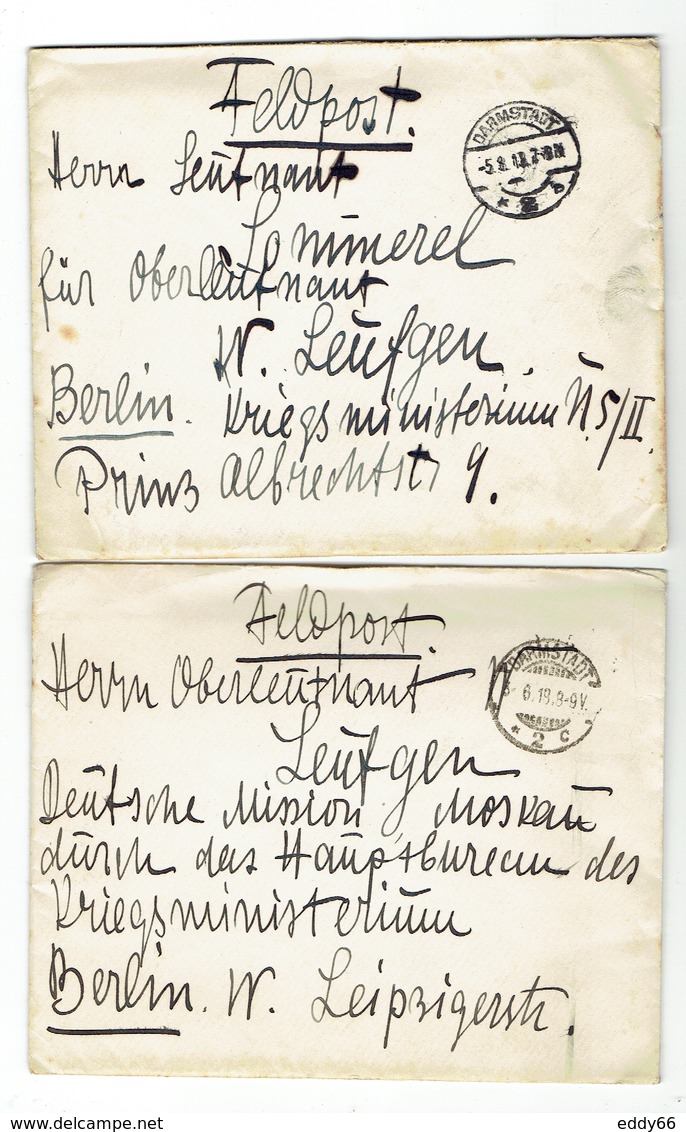 Feldpost.
DARMSTADT
-5.9.18.7-8N
* 2 b
Herrn Leutnant
Sommerel
für Oberleutnant
W. Leufgen.
Berlin. Kriegsministerium Ü.5/II.
Prinz Albrechtstr 9.
Feldpost.
DARMSTADT
6.18.8-9V.
* 2 c
Herrn Oberleutnant
Leufgen
Deutsche Mission Moskau
durch das Hauptbureau des
Kriegsministerium
Berlin. W. Leipzigerstr.
eddy66